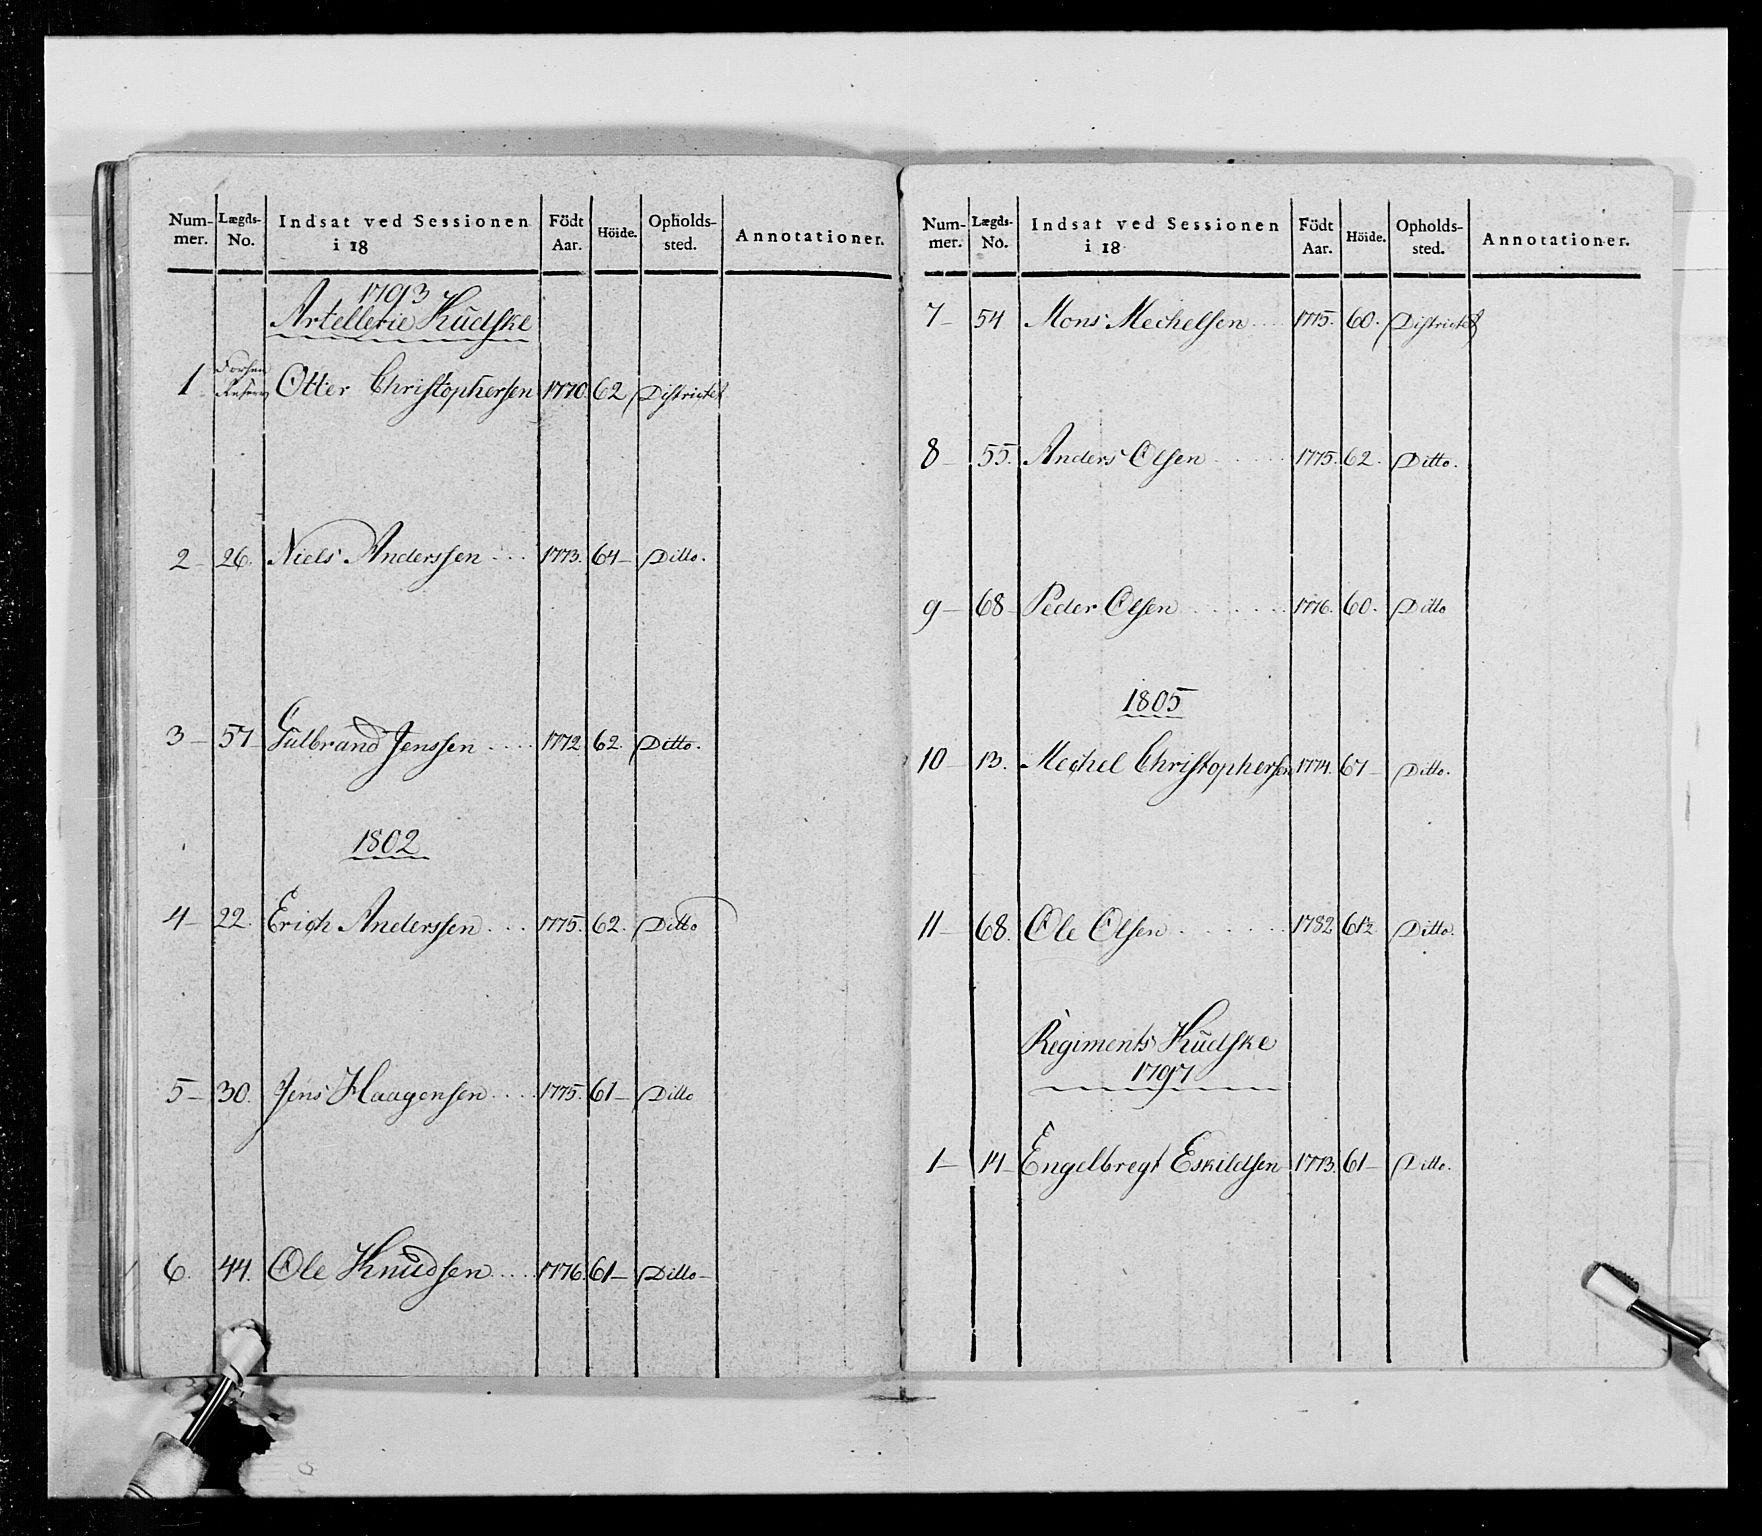 Num- Lægds- Indsat ved Sessionen Födt Höide. Opholds- Annotationer.
mer. No. i 18 Aar. sted.
1793
Artellerie Kudske
1 Otter Christophersen 1770. 62 Districtet
2 – 26. Niels Anderssen 1773. 64 – Ditto.
3 – 57 Gulbrand Jenssen 1772 62. Ditto.
1802
4 – 22. Erich Anderssen 1775. 62. Ditto
5 – 30. Jens Haagensen 1775. 61 – Ditto
6. 44. Ole Knudsen 1776. 61 – Ditto –
Num- Lægds- Indsat ved Sessionen Födt Höide. Opholds- Annotationer.
mer. No. i 18 Aar. sted.
7 – 54 Mons Mechelsen 1775. 60. Districtet
8 – 55. Anders Olsen 1775. 62. Ditto.
9 – 68 – Peder Olsen 1776. 60. Ditto
1805
10 – 13. Mechel Christophersen 1774. Ditto.
11 – 68. Ole Olsen 1782 61½ Ditto.
Regiments Kudske
1797
1 – 14 – Engelbregt Eskildsen 1773. 61 – Ditto.